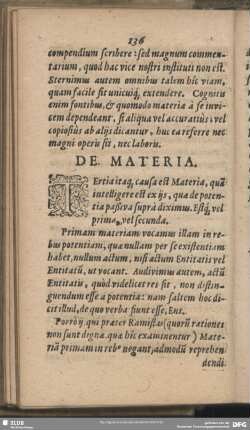 136
compendium scribere: sed magnum commen-
tarium, quod hac vice nostri instituti non est.
Sternimus autem omnibus talem hîc viam,
quam facile sit unicuiq; extendere. Cognitis
enim fontibus, & quomodo materia à se invi-
cem dependeant, si aliqua vel accuratiùs: vel
copiosiùs ab alijs dicantur, huc ea referre nec
magni operis sit, nec laboris.
DE MATERIA.
TErtia itaq; causa est Materia, quā
intelligere est ex ijs, quæ de poten-
tia passiva suprà diximus. Estq; vel
prima, vel secunda.
Primam materiam vocamus illam in re-
bus potentiam, quæ nullam per se existentiam
habet, nullum actum, nisi actum Entitatis vel
Entitatīu, ut vocant. Audivimus autem, actū
Entitatis, quod videlicet res sit, non distin-
guendum esse a potentia: nam saltem hoc di-
cit illud, de quo verba fiunt esse, Ens.
Porrò ij, qui præter Ramistas (quorū rationes
non sunt dignæ, quæ hîc examinentur) Mate-
riā primam in rebꝰ negant, admodū repreben
dendi
SLUB
DFG